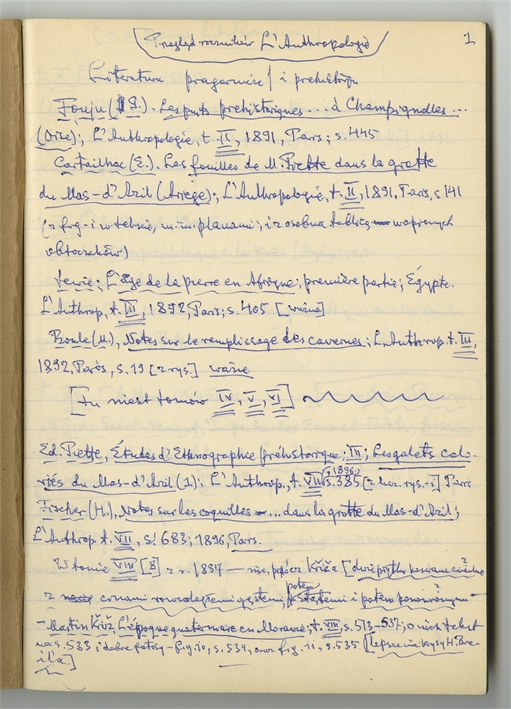 Przegląd roczników L'Anthropologie
1
Literatura i prehistoryczna
Fouju (G.). Les puits préhistoriques ... à Champignolles ...
(Oise); L'Anthropologie, t. II, 1891, Paris; s. 445
Cartailhac (E.). Les fouilles de M. Piette dans la grotte
du Mas-d'Azil (Ariège); L'Anthropologie, t. II, 1891, Paris, s. 141
i w tekście, m. in. planami; i z osobna tablicą
otoczaków)
L'âge de la pierre en Afrique; première partie; Égypte.
L'Anthrop, t. III, 1892; Paris; s. 405 [ważne]
Boule (M.), Notes sur le remplissage des cavernes; L'Anthrop. t. III,
1892, Paris, s. 19 [z rys.] ważne
[Tu niest tomów IV, V, VI]
Ed. Piette, Études d'Ethnographie préhistorique; III; Les galets colo-
riés du Mas-d'Azil (2); L'Anthrop, t. VII, (1896) s. 385 Paris
Fischer (H.), Notes sur les coquilles ... dans la grotte du Mas-d'Azil;
L'Anthrop. t. VII, s. 683; 1896, Paris.
W tomie VIII [8] z r. 1897 — nic, prócz Kříža
z i potem
- Martin Kříž, L'époque quaternaire en Moravie; t. VIII, s. 513-537; o nich tekst
na s. 533 i dobre fig. 10, s. 534, oraz fig. 11, s. 535